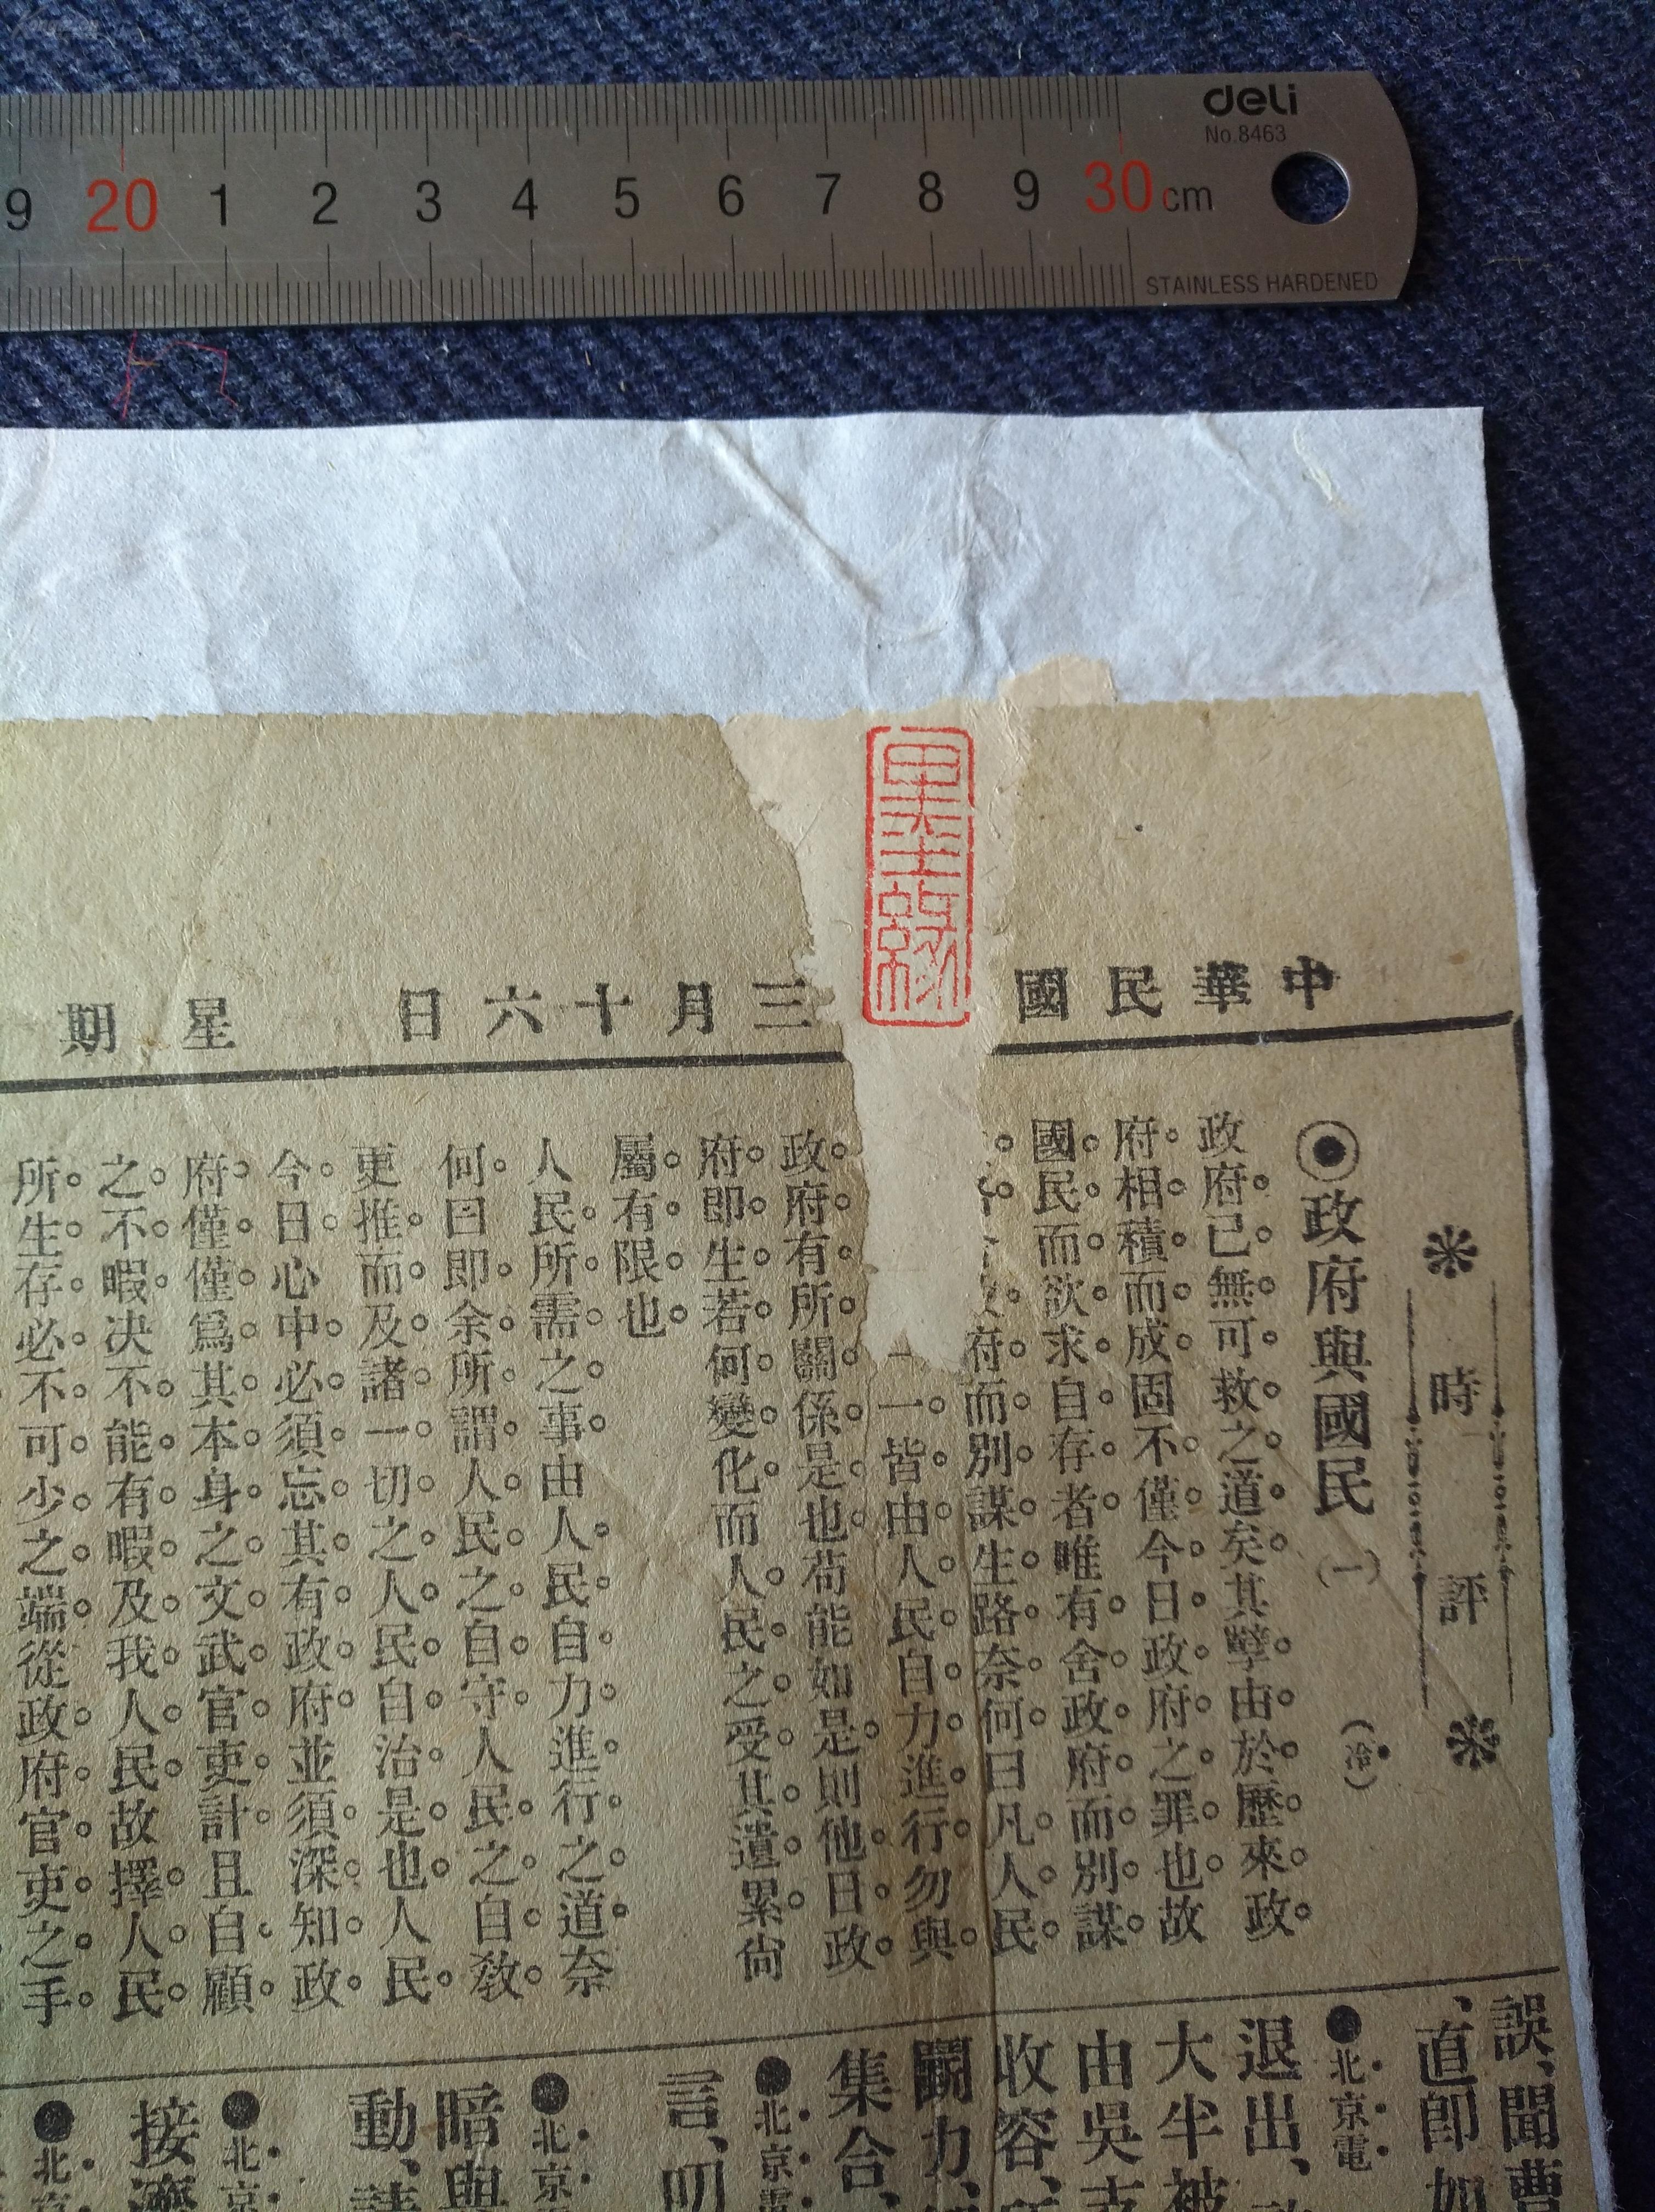 deli
No.8463
9 20 1 2 3 4 5 6 7 8 9 30 cm
STAINLESS HARDENED
墨緣
中華民國
三月十六日 星期
時評
◉政府與國民 (一) (冷)
政府。已。無可。救。之。道。矣。其孽。由。於。歷。來。政。
府。相。積。而。成。固不。僅。今。日。政。府。之。罪。也。故
國。民。而。欲。求。自。存。者。唯有。舍。政。府。而。別。謀。
府。而。別。謀。生。路。奈。何。曰凡。人。民。
一。皆。由。人。民。自。力。進。行。勿。與。
政。府。有。所。關。係。是。也。苟能如是。則他。日。政。
府。即。生。若。何。變。化。而人。民。之。受。其。遺。累。尙
屬。有。限。也。
人民。所。需。之。事。由人。民。自。力進。行。之。道。奈
何。曰即。余。所。謂。人。民。之。自。守。人民。之。自。敎。
更推。而。及。諸。一。切。之。人。民。自。治。是。也。人民。
今。日。心中。必。須。忘。其。有。政。府。並須。深。知。政。
府。僅。僅。爲。其。本。身。之。文。武。官。吏。計。且自。顧。
之。不。暇。决不。能。有。暇。及。我。人。民。故擇。人。民。
所。生。存。必。不。可。少。之。端。從。政。府。官。吏。之。手。
誤、聞曹
、直即如
●北京電
退出、
大半被
由吳
收容、
鬭力、
集合、
●北京電
言、叨
●北京
暗與
動、
●北京
接濟
●北京